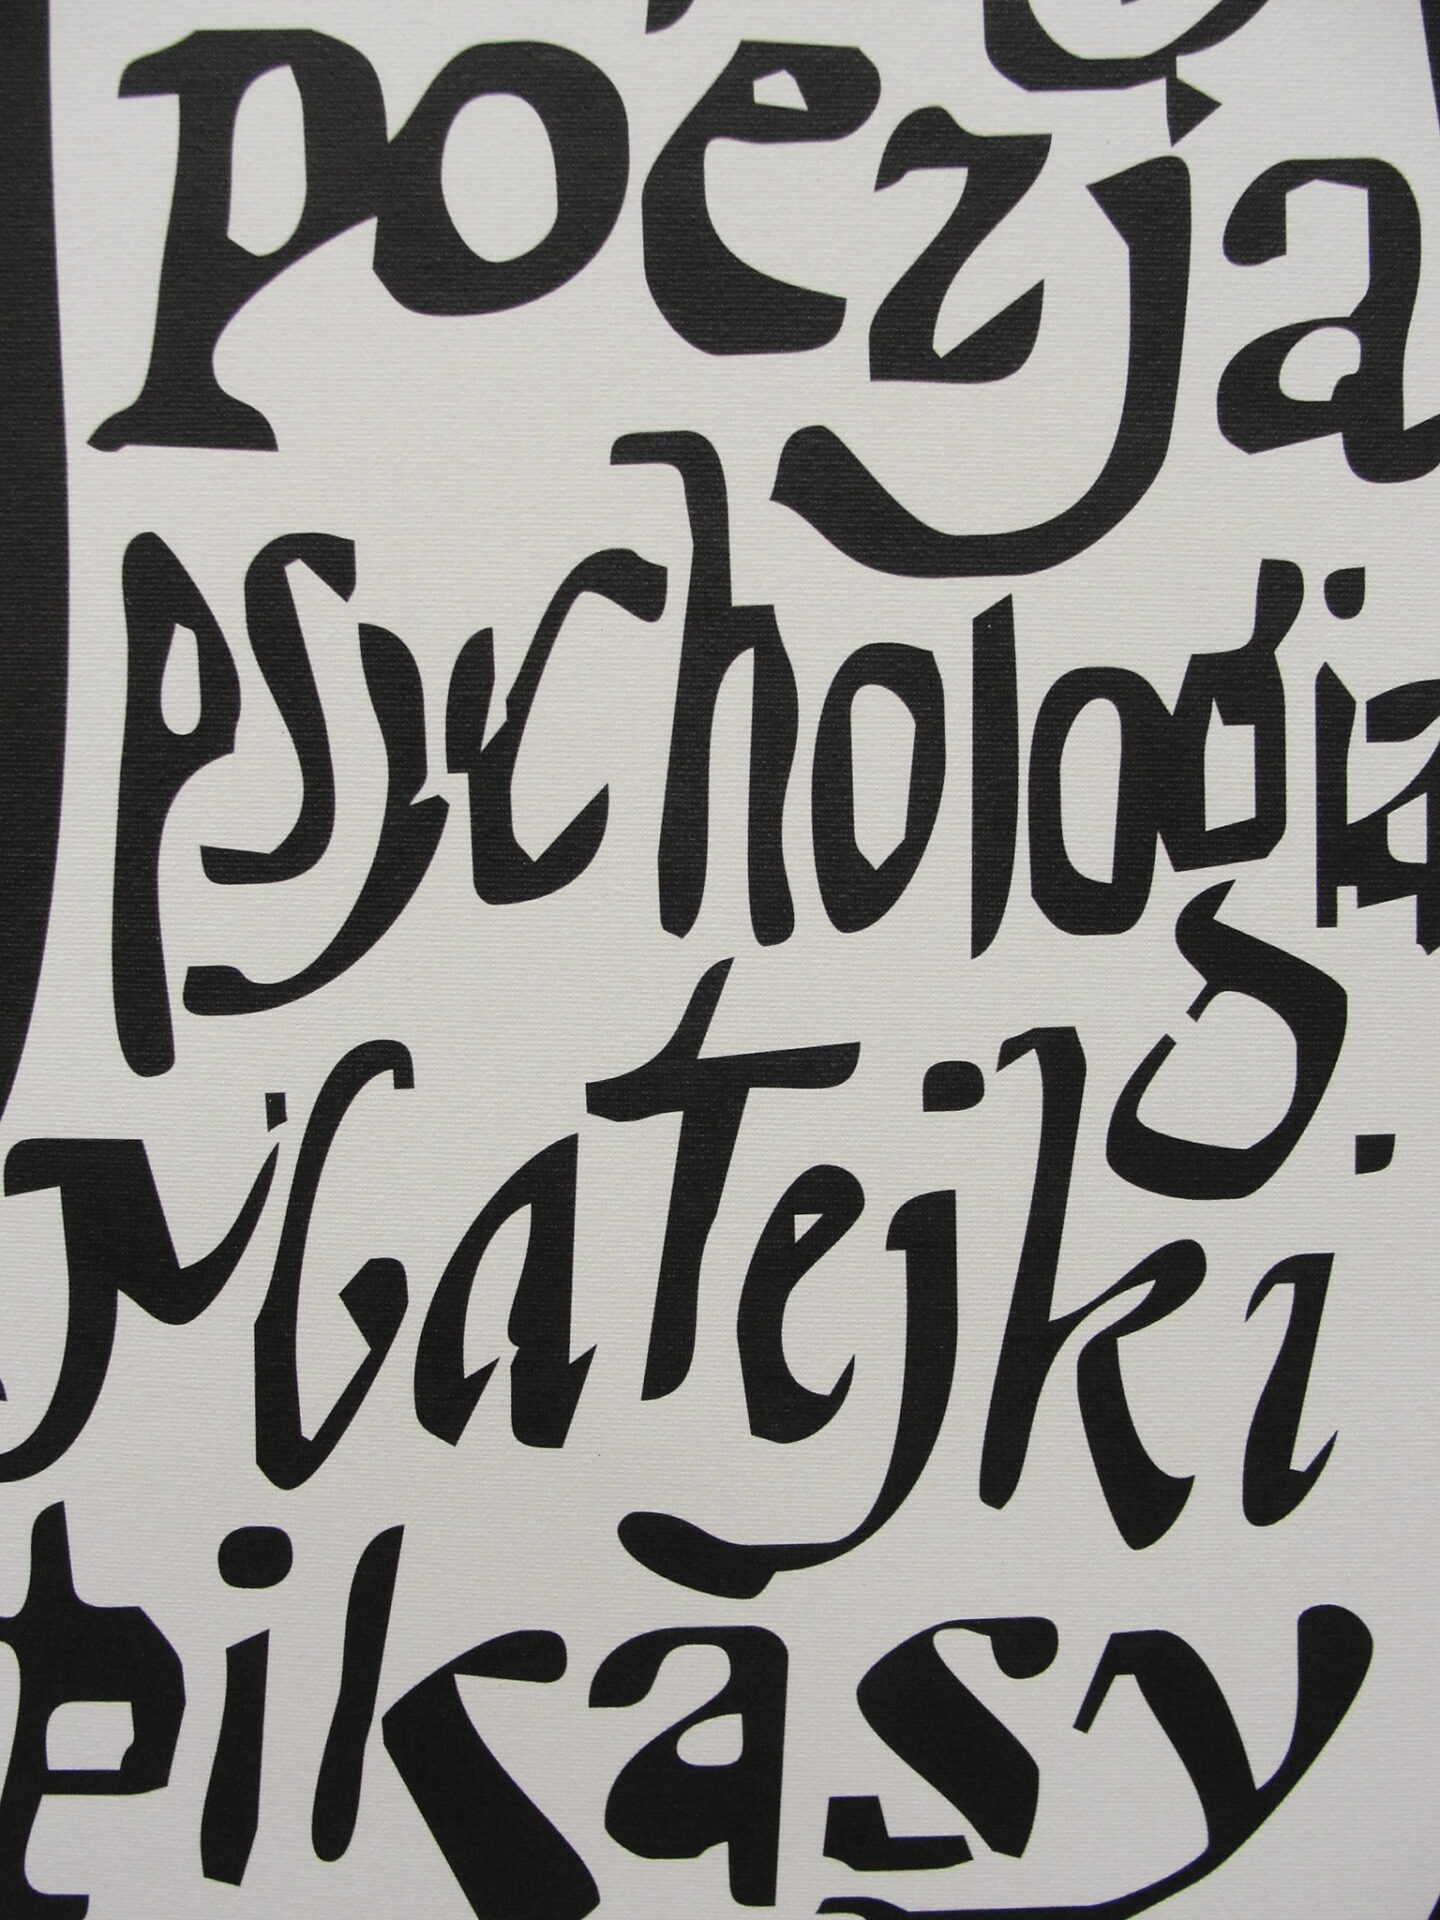 poezja
psychologia
Matejki
pikasy